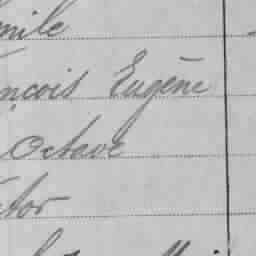 mile
nçois Eugène
Octave
ctor